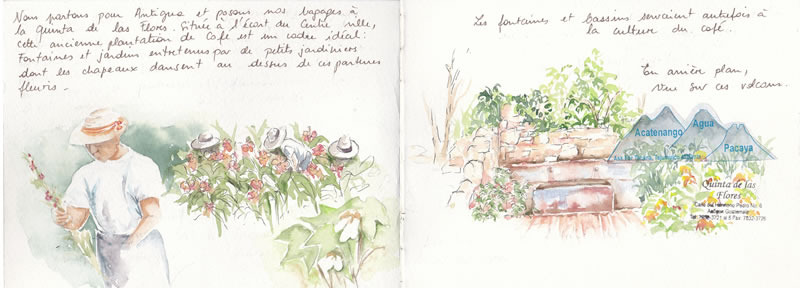 Nous partons pour Antigua et posons nos bagages à
la Quinta de las Flores. Située à l'écart du Centre ville,
cette ancienne plantation de Café est un cadre idéal :
Fontaines et jardins entretenus par de petits jardiniers
dont les chapeaux dansent au dessus de ces parterres
fleuris.
Les fontaines et bassins servaient autrefois à
la culture du café..
En arrière plan,
vue sur ces volcans.
Acatenango
Agua
Pacaya
Quinta de las
Flores
Calle del Hermano Pedro No. 6
Antigua Guatemala